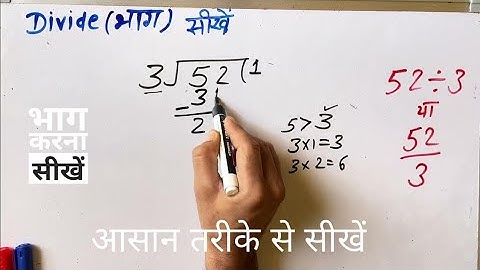 Divide (भाग) सीखें
3√52(1
-3
2
5>3✓
3×1=3
3×2=6
52÷3
या
52
3
भाग
करना
सीखें
आसान तरीके से सीखें